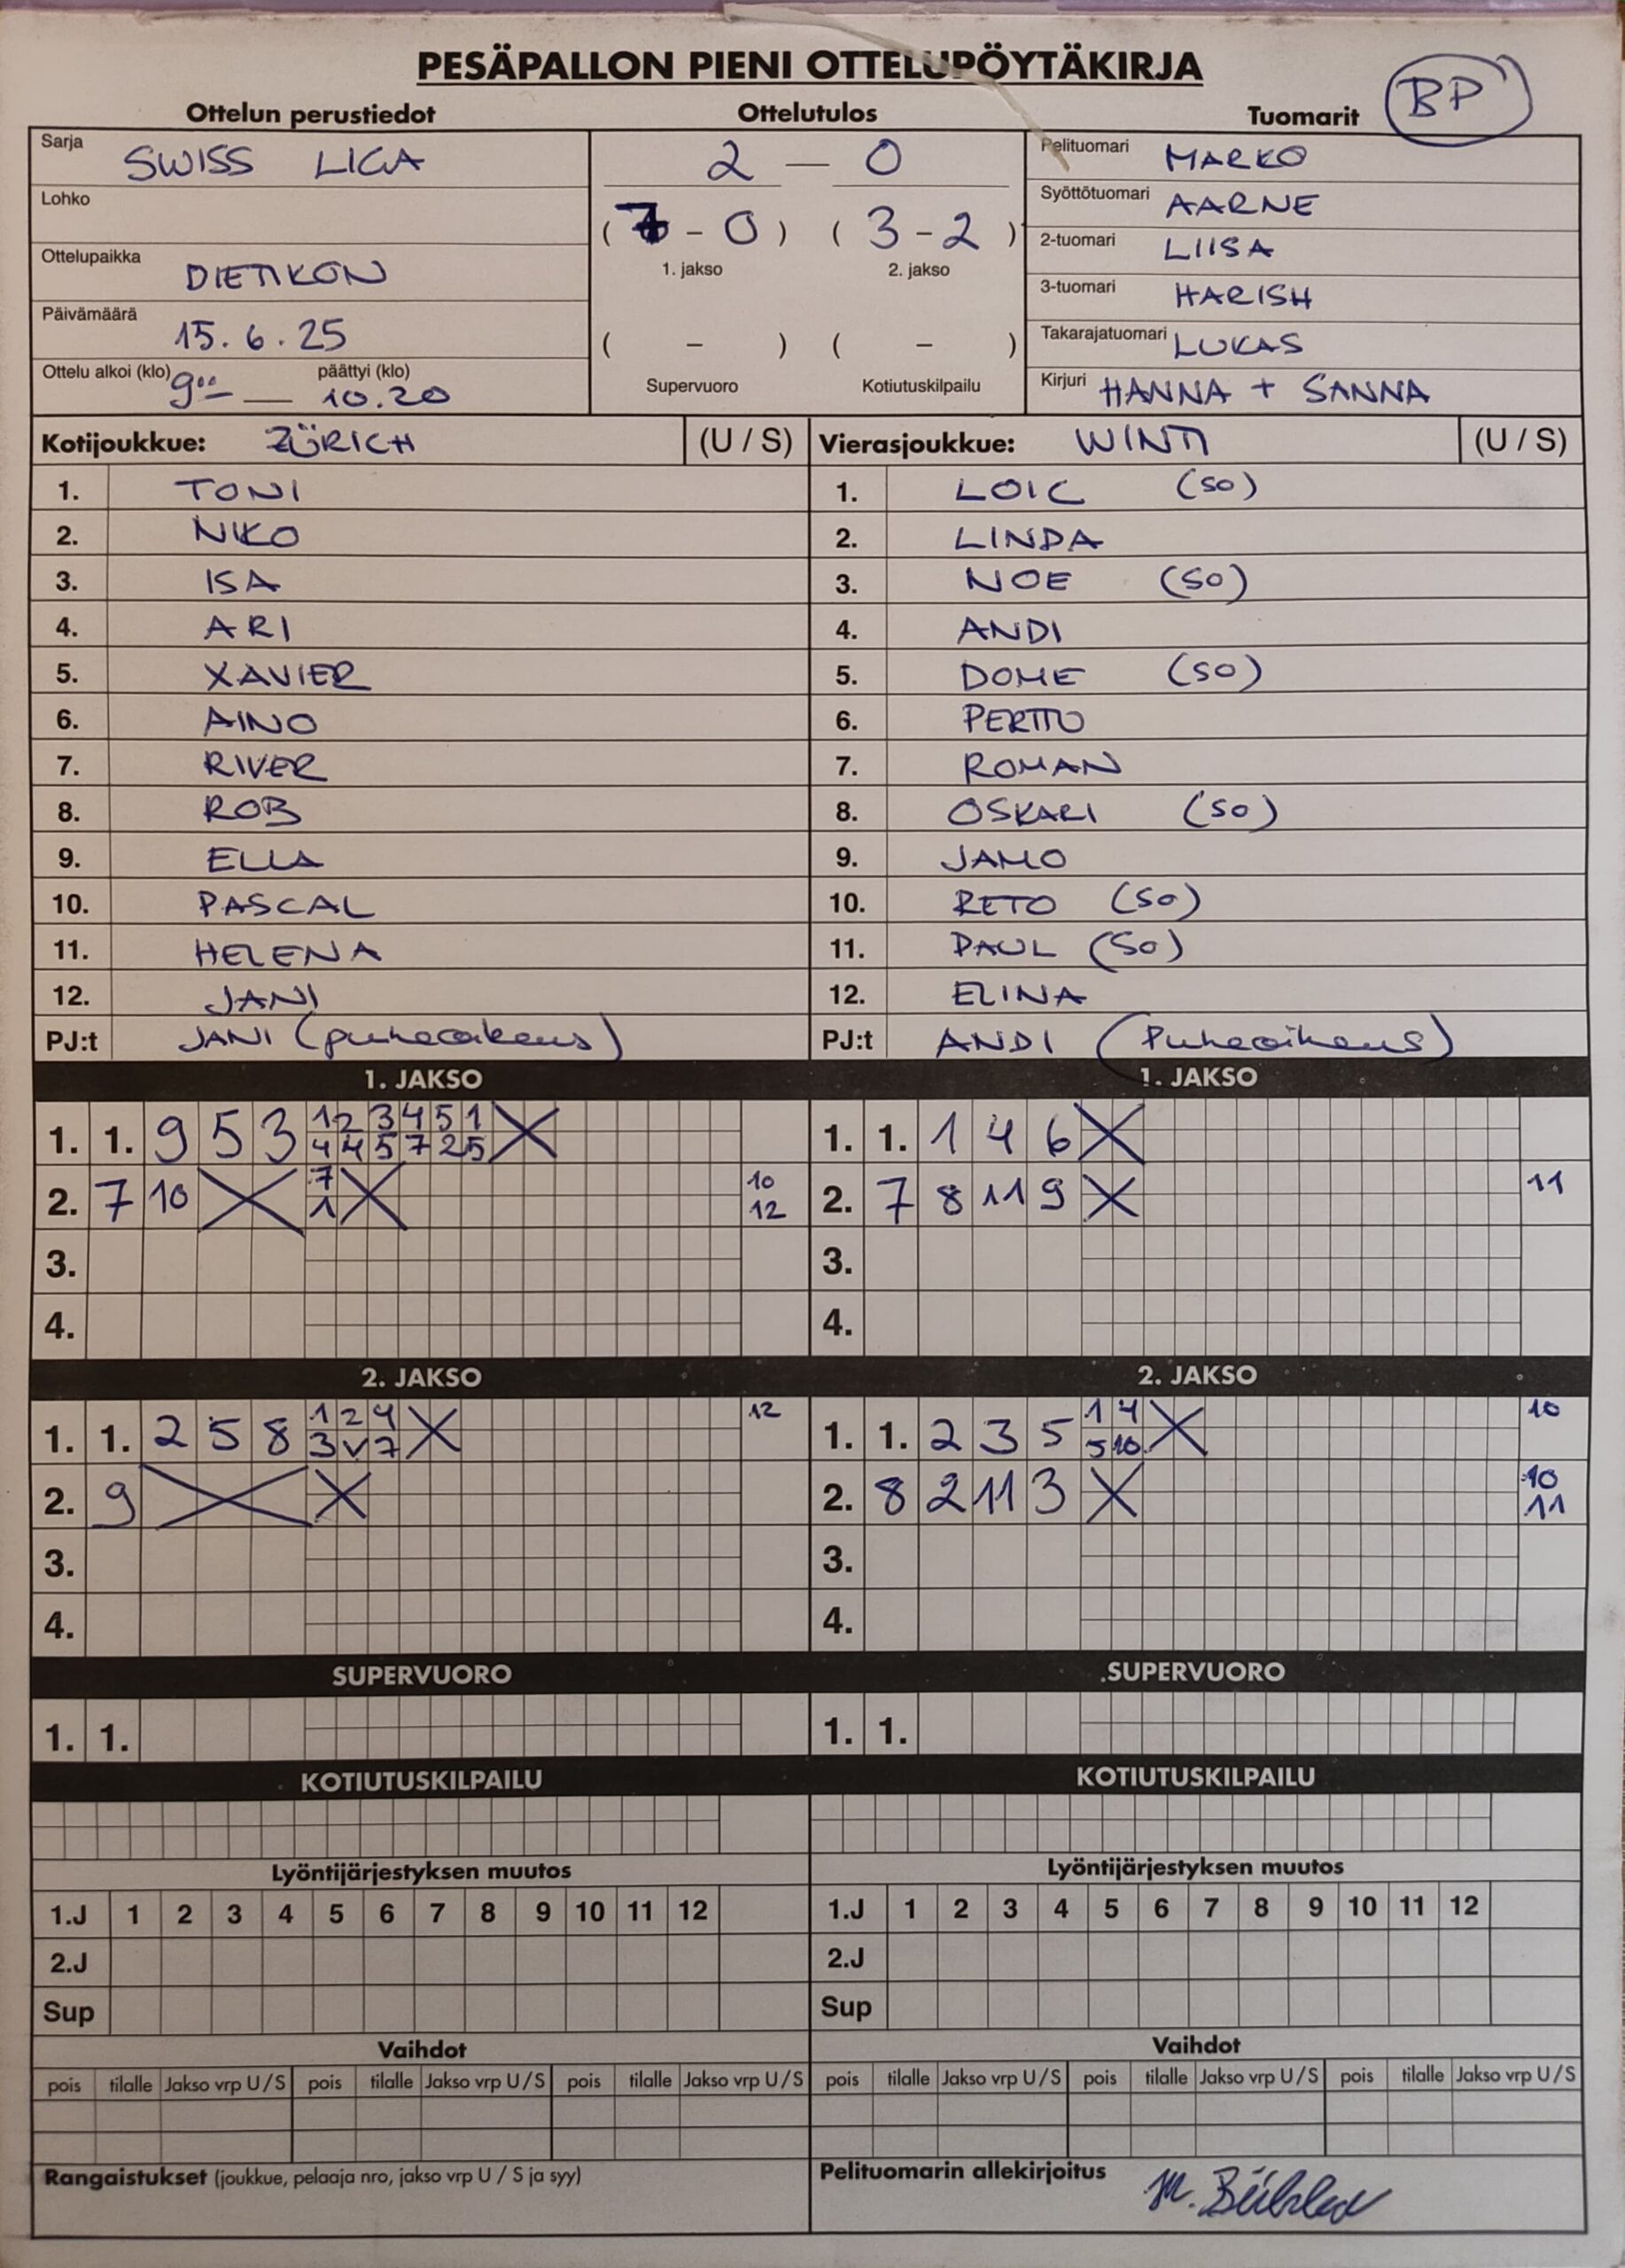 PESÄPALLON PIENI OTTELUPÖYTÄKIRJA
BP
Ottelun perustiedot
Sarja SWISS LIGA
Lohko
Ottelupaikka DIETIKON
Päivämäärä 15.6.25
Ottelu alkoi (klo) 9⁰⁰ — päättyi (klo) 10.20
Ottelutulos
2 — 0
(7 - 0) (3 - 2)
1. jakso 2. jakso
( - ) ( - )
Supervuoro Kotiutuskilpailu
Tuomarit
Pelituomari MARKO
Syöttötuomari AARNE
2-tuomari LIISA
3-tuomari HARISH
Takarajatuomari LUKAS
Kirjuri HANNA + SANNA
Kotijoukkue: ZÜRICH (U / S)
1. TONI
2. NIKO
3. ISA
4. ARI
5. XAVIER
6. AINO
7. RIVER
8. ROB
9. ELLA
10. PASCAL
11. HELENA
12. JANI
PJ:t JANI (puheoikeus)
Vierasjoukkue: WINTI (U / S)
1. LOIC (SO)
2. LINDA
3. NOE (SO)
4. ANDI
5. DOME (SO)
6. PERTTU
7. ROMAN
8. OSKARI (SO)
9. JAMO
10. RETO (SO)
11. PAUL (SO)
12. ELINA
PJ:t ANDI (Puheoikeus)
1. JAKSO
1. 1. 9 5 3 1 2 3 4 5 1 X
4 4 5 7 2 5
2. 7 10 X 7 X 10
1 12
3.
4.
1. JAKSO
1. 1. 1 4 6 X
2. 7 8 11 9 X 11
3.
4.
2. JAKSO
1. 1. 2 5 8 1 2 4 X 12
3 V 7
2. 9 X X
3.
4.
2. JAKSO
1. 1. 2 3 5 1 4 X 10
5 10
2. 8 2 11 3 X 10
11
3.
4.
SUPERVUORO
1. 1.
SUPERVUORO
1. 1.
KOTIUTUSKILPAILU
KOTIUTUSKILPAILU
Lyöntijärjestyksen muutos
1.J 1 2 3 4 5 6 7 8 9 10 11 12
2.J
Sup
Lyöntijärjestyksen muutos
1.J 1 2 3 4 5 6 7 8 9 10 11 12
2.J
Sup
Vaihdot
pois tilalle Jakso vrp U / S pois tilalle Jakso vrp U / S pois tilalle Jakso vrp U / S
Vaihdot
pois tilalle Jakso vrp U / S pois tilalle Jakso vrp U / S pois tilalle Jakso vrp U / S
Rangaistukset (joukkue, pelaaja nro, jakso vrp U / S ja syy)
Pelituomarin allekirjoitus M.